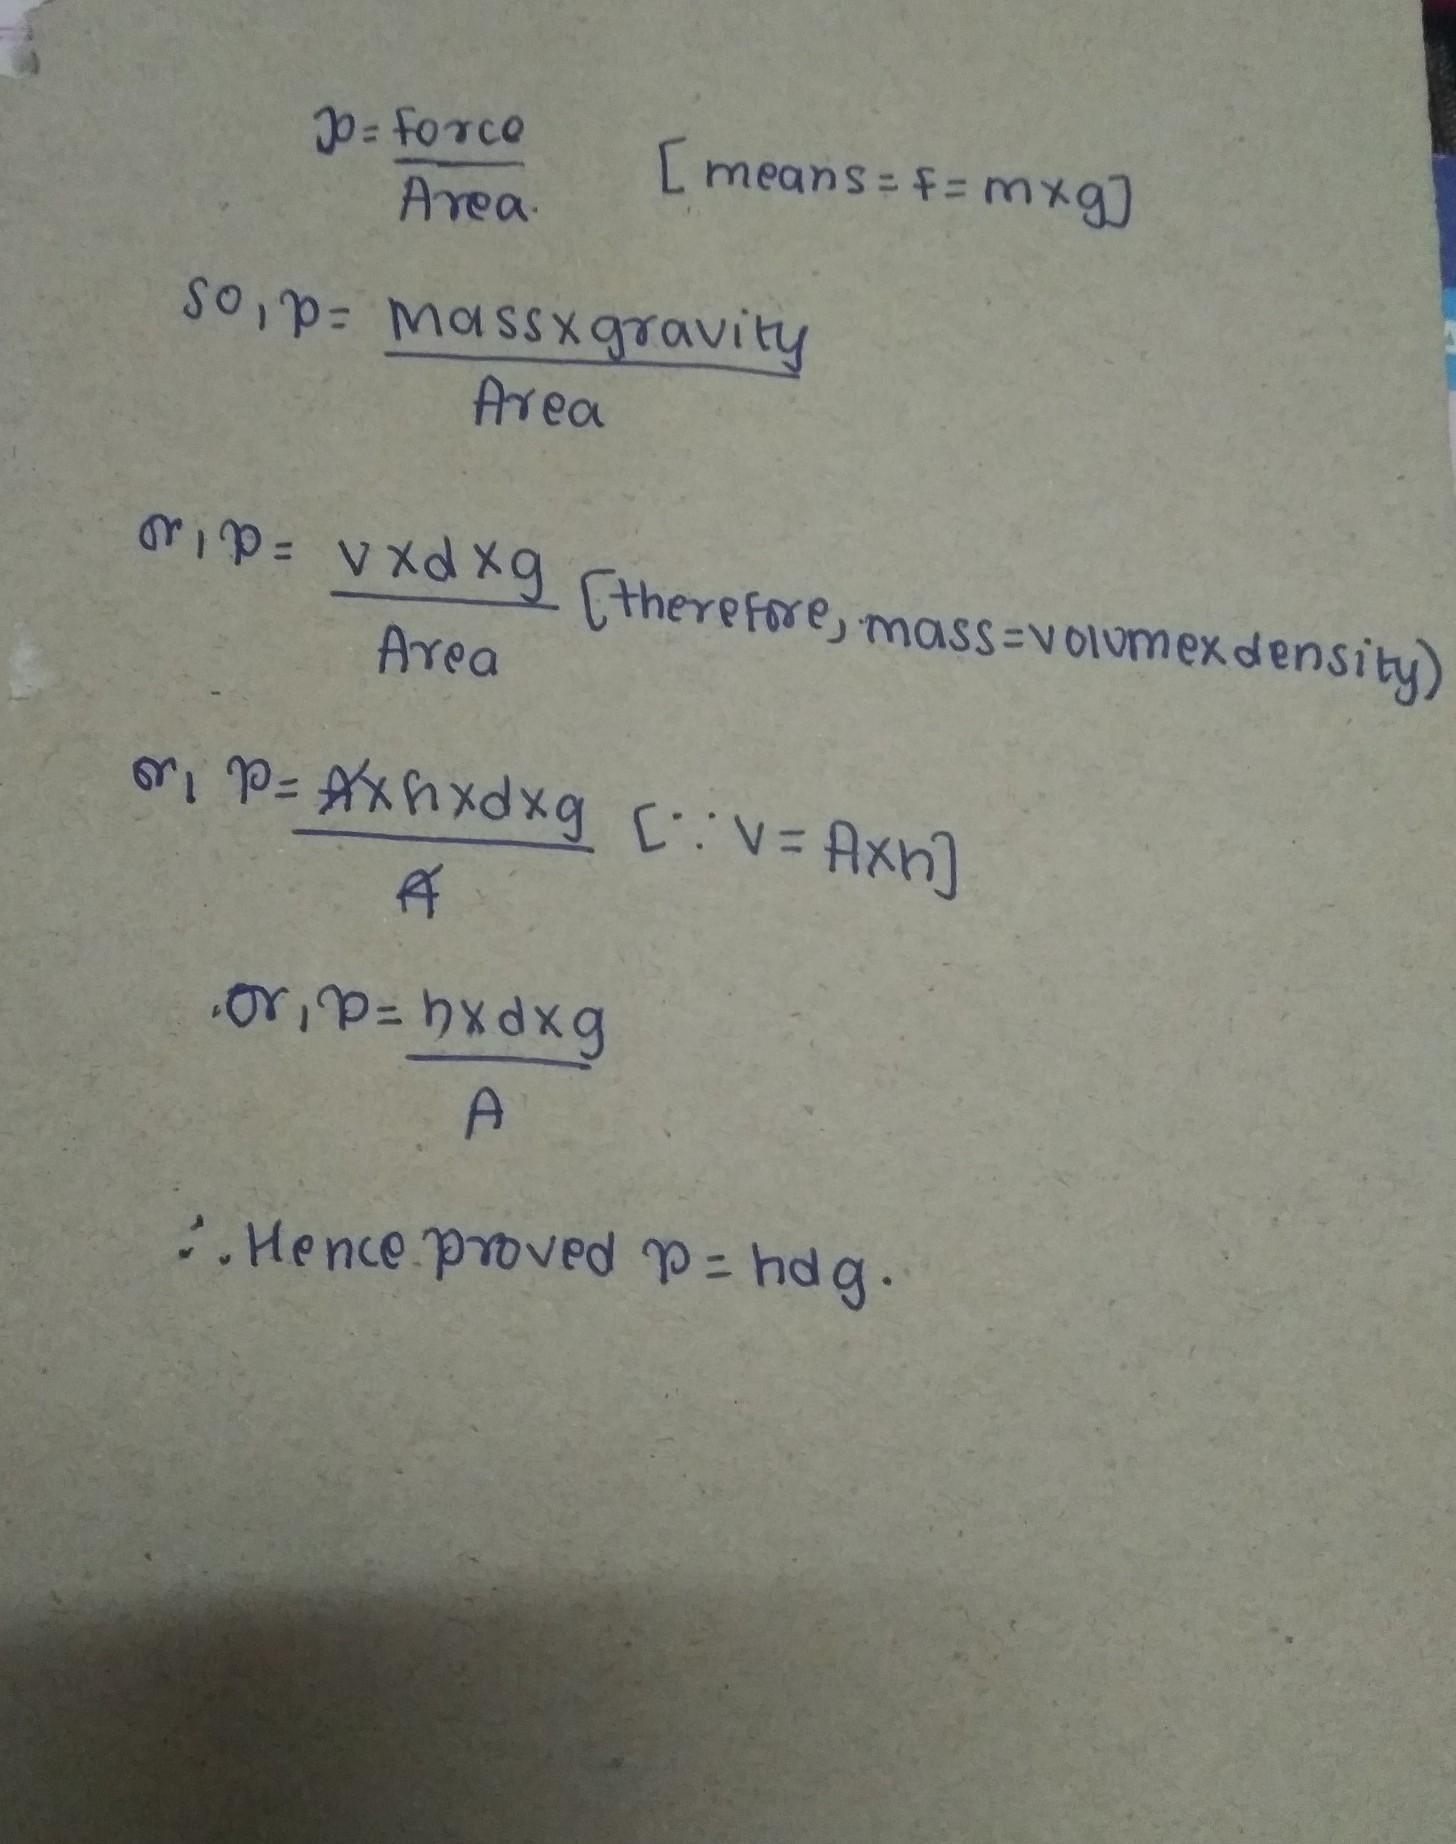 p = Force
Area. [means = F = m x g]
so, p = mass x gravity
Area
or, p = v x d x g [therefore, mass = volume x density)
Area
or, p = A x h x d x g [∵ v = A x h]
A
or, p = h x d x g
A
∴ Hence proved p = hdg.